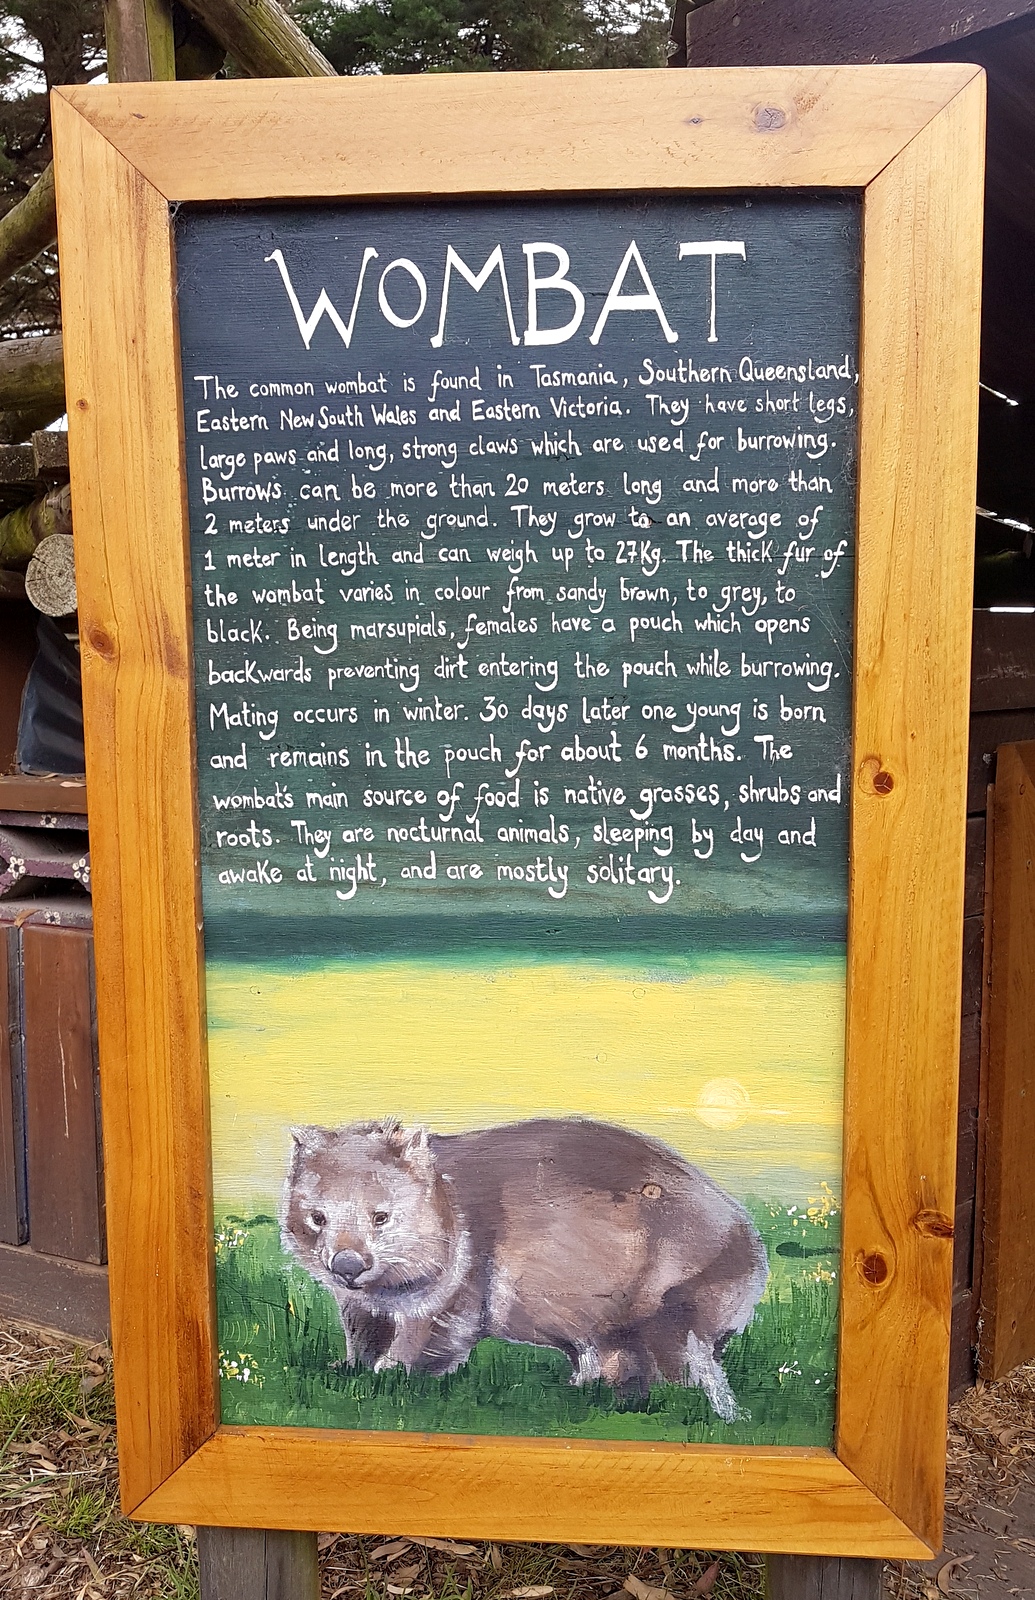 WOMBAT
The common wombat is found in Tasmania, Southern Queensland,
Eastern New South Wales and Eastern Victoria. They have short legs,
large paws and long, strong claws which are used for burrowing.
Burrows can be more than 20 meters long and more than
2 meters under the ground. They grow to an average of
1 meter in length and can weigh up to 27Kg. The thick fur of
the wombat varies in colour from sandy brown, to grey, to
black. Being marsupials, females have a pouch which opens
backwards preventing dirt entering the pouch while burrowing.
Mating occurs in winter. 30 days later one young is born
and remains in the pouch for about 6 months. The
wombat's main source of food is native grasses, shrubs and
roots. They are nocturnal animals, sleeping by day and
awake at night, and are mostly solitary.